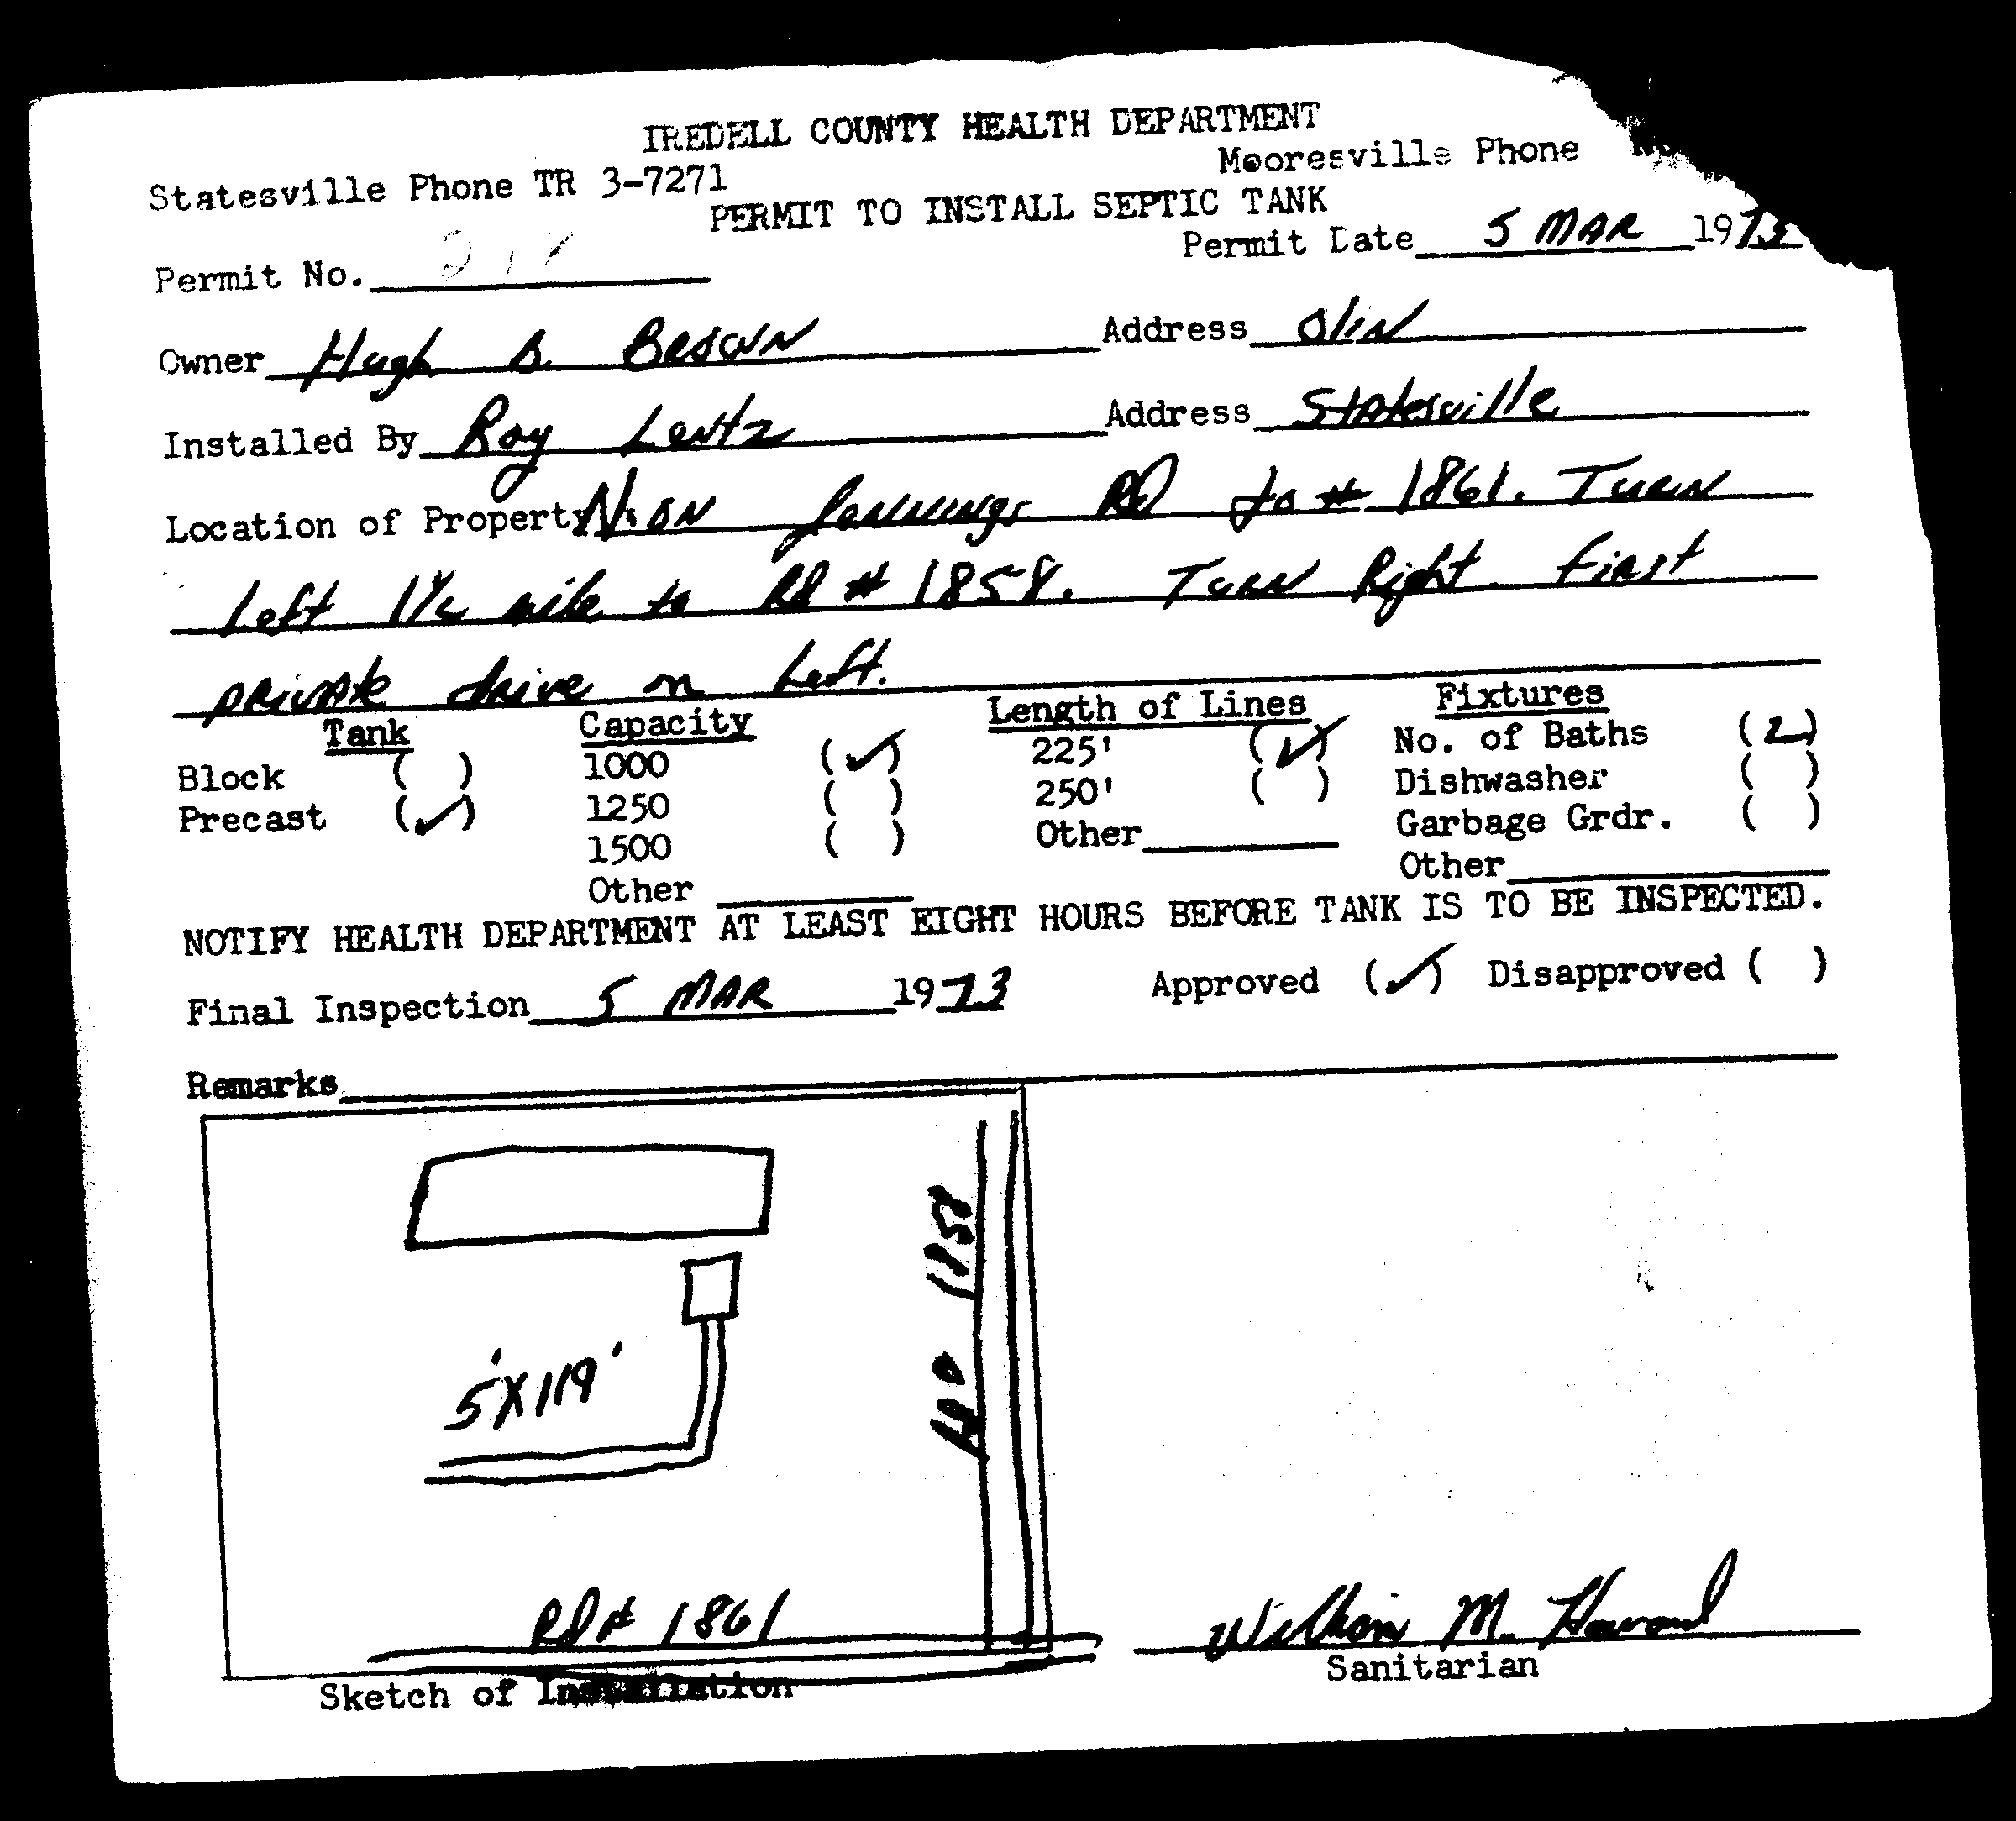 IREDELL COUNTY HEALTH DEPARTMENT
Statesville Phone TR 3-7271 Mooresville Phone
PERMIT TO INSTALL SEPTIC TANK
Permit No. Permit Date 5 MAR 1973
Owner Hugh B. BROWN Address Olin
Installed By Roy Lentz Address Statesville
Location of Property N. ON Jennings Rd to # 1861. TURN
Left 1 1/2 mile to Rd # 1858. TURN Right first
private drive on Left.
Tank Capacity Length of Lines Fixtures
Block ( ) 1000 (✓) 225' (✓) No. of Baths (2)
Precast (✓) 1250 ( ) 250' ( ) Dishwasher ( )
1500 ( ) Other Garbage Grdr. ( )
Other Other
NOTIFY HEALTH DEPARTMENT AT LEAST EIGHT HOURS BEFORE TANK IS TO BE INSPECTED.
Final Inspection 5 MAR 1973 Approved (✓) Disapproved ( )
Remarks
RD 1858
5'X119'
Rd# 1861
William M. Howard
Sketch of Installation Sanitarian